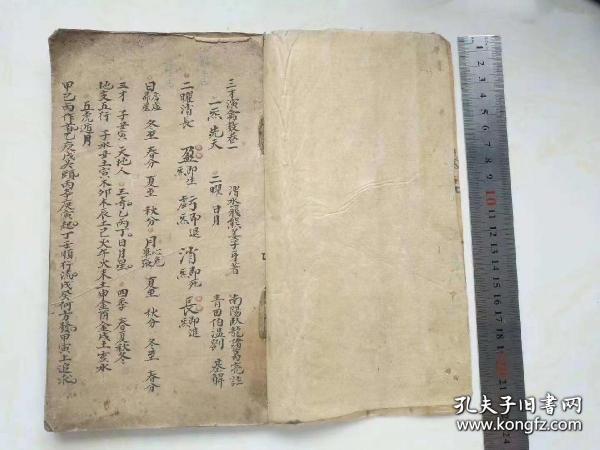 三才演禽数卷一　渭水飛熊姜子牙著　南陽臥龍諸葛亮註
一炁先天　二曜日月　青田伯温劉基解
二曜消長　盈即生　虧即退　消即死　長即進
日　冬至　春分　夏至　秋分　月　夏至　秋分　冬至　春分
三才　子丑寅　天地人　三奇　乙丙丁　日月星　四季　春夏秋冬
地支五行　子水丑土寅木卯木辰土巳火午火未土申金酉金戌土亥水
五虎遁月
甲己丙作首乙庚戊為頭丙辛庚寅起丁壬順行流戊癸何方發甲寅上追求
孔夫子旧书网
www.kongfz.com
1
2
3
4
5
6
7
8
9
10